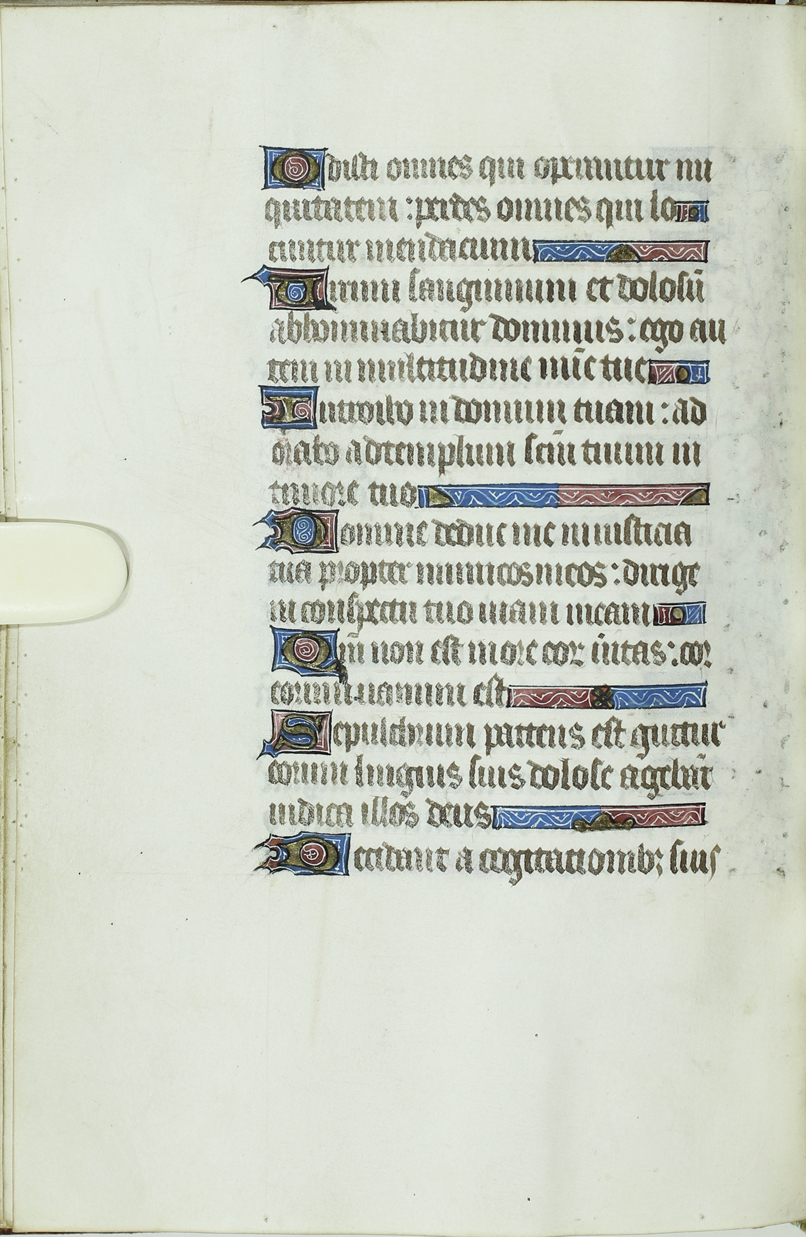 Odisti omnes qui operantur ini
quitatem : perdes omnes qui lo
cuntur mendacium
Uirum sanguinum et dolosū
abhominabitur dominus : ego au
tem in multitudine mīe tue
Introibo in domum tuam : ad
orabo ad templum scm̄ tuum in
timore tuo
Domine deduc me in iusticia
tua propter inimicos meos : dirige
in conspectu tuo uiam meam
Qm̄ non est in ore eor ūitas : cor
eorum uanum est
Sepulchrum patens est guttur
eorum linguis suis dolose agebāt
iudica illos deus
Decidant a cogitationibꝫ suis